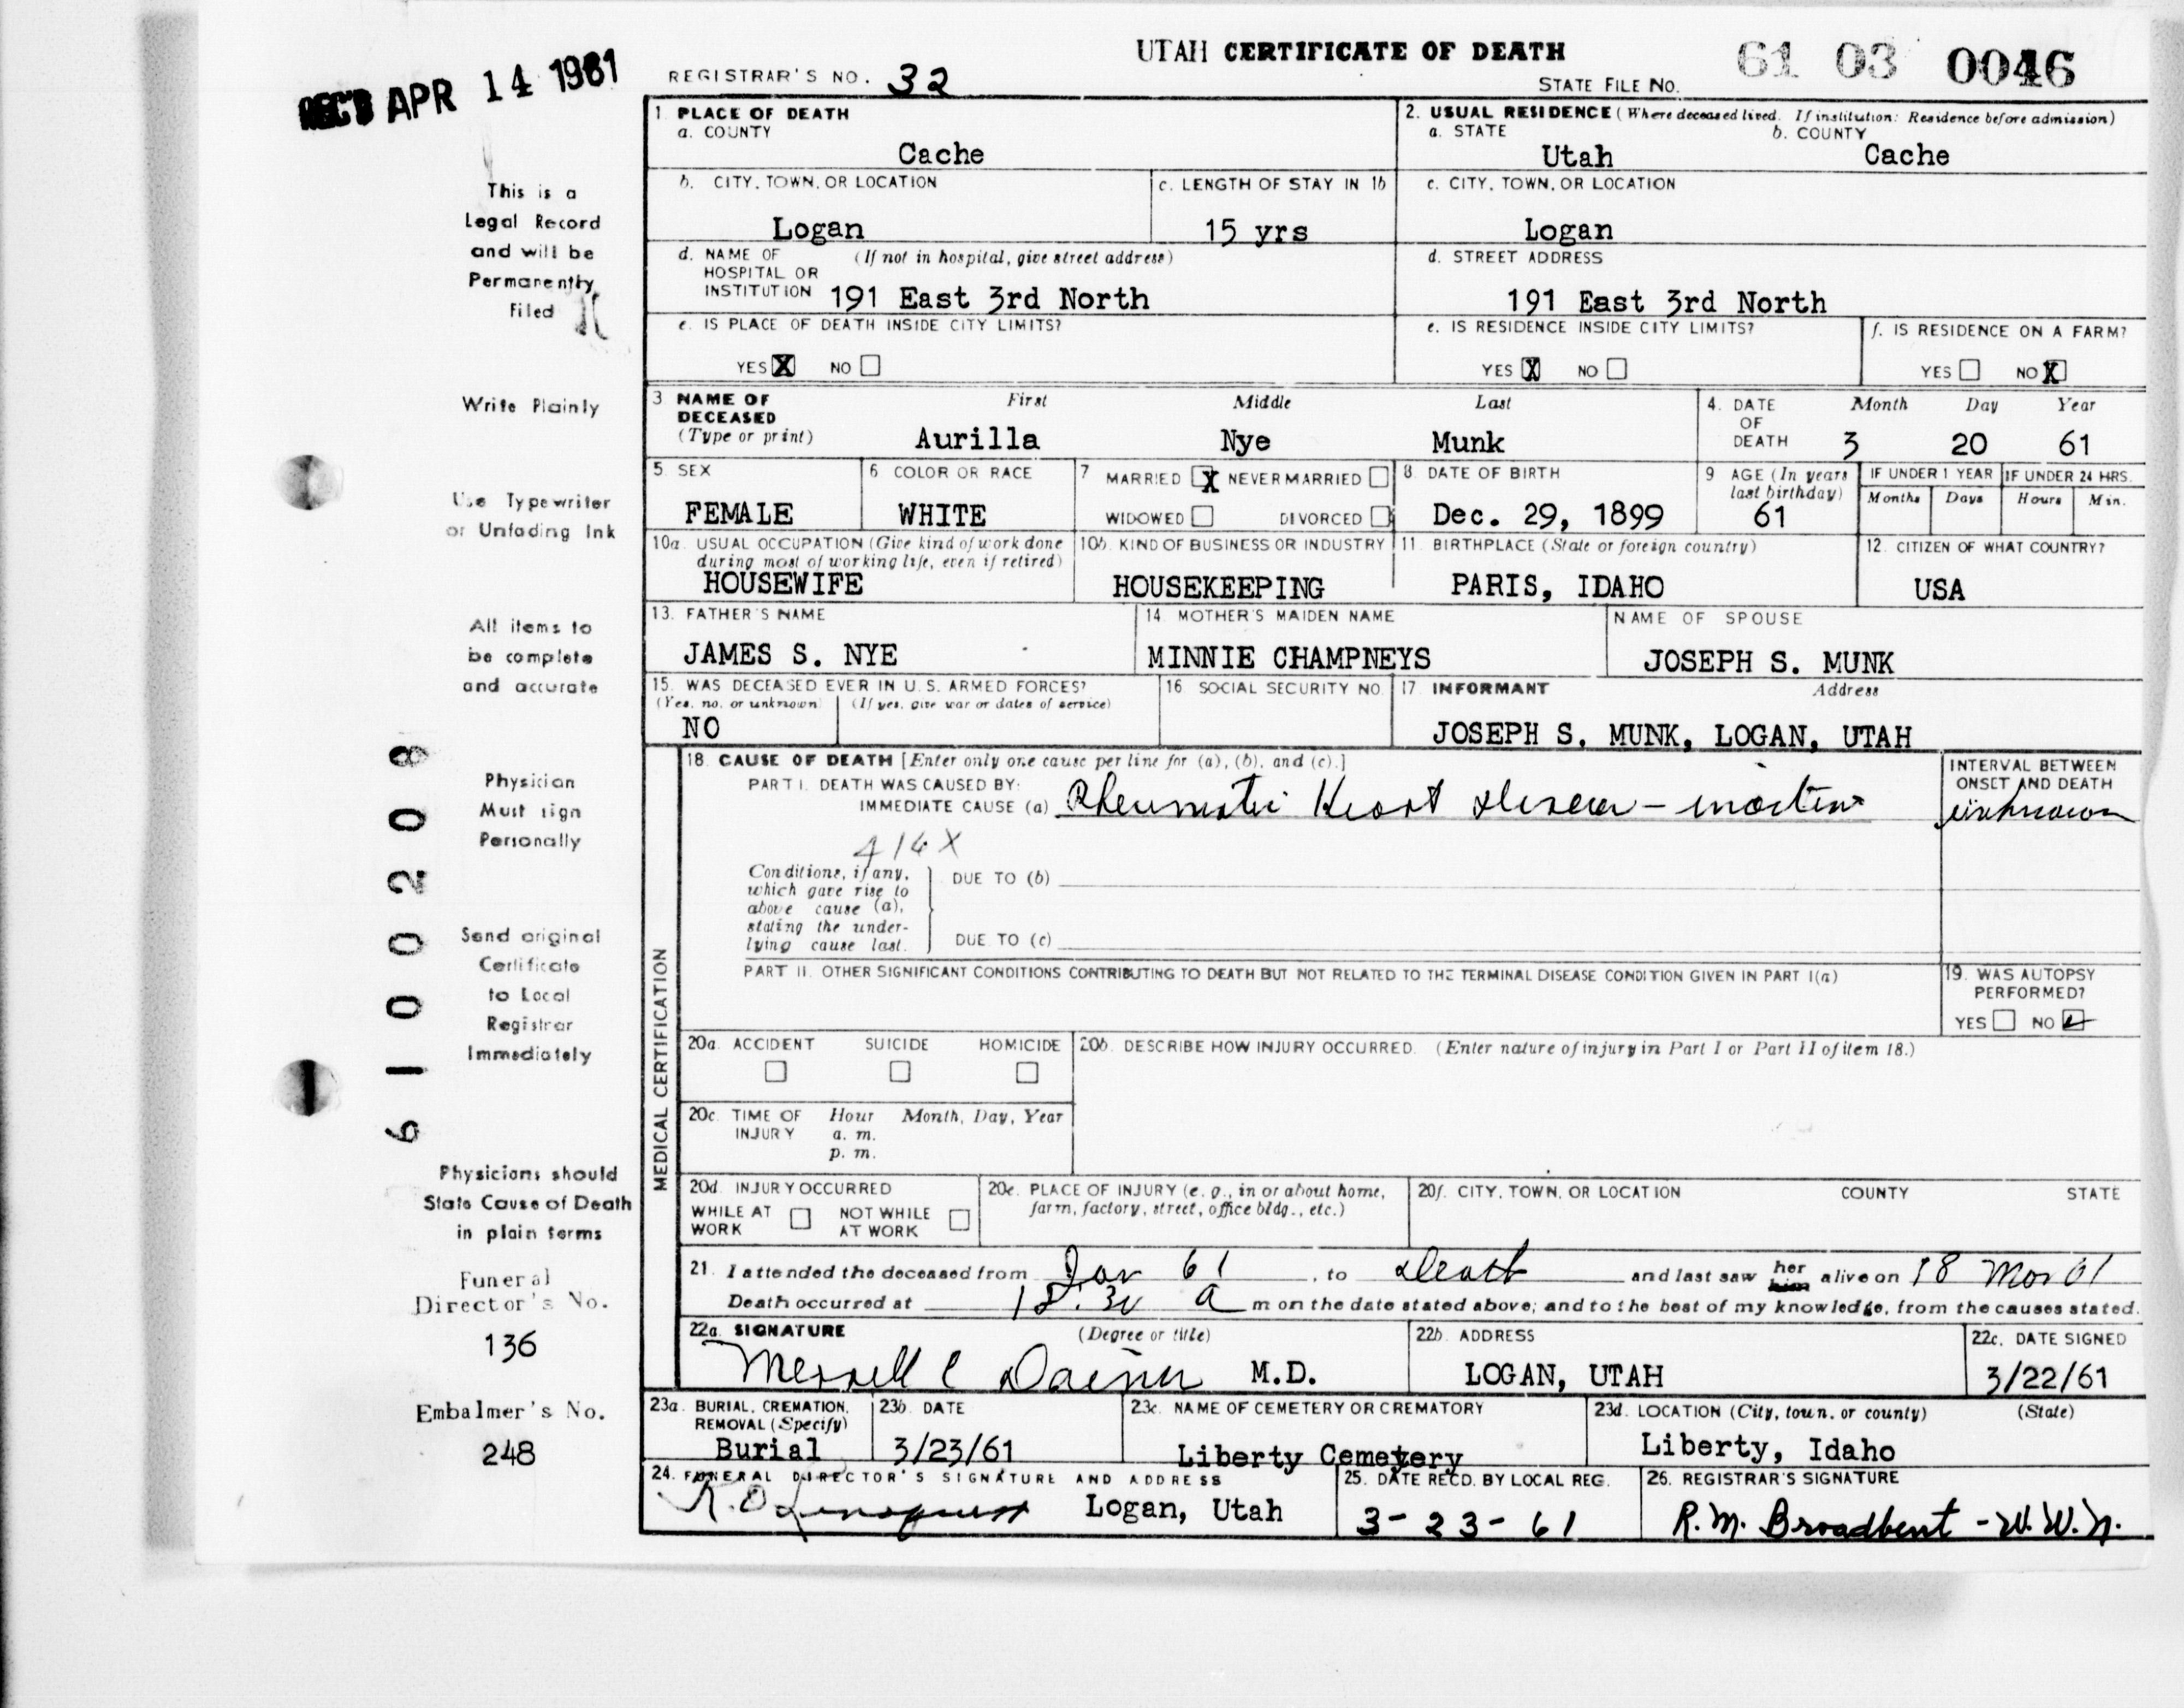 REC'D APR 14 1961
UTAH CERTIFICATE OF DEATH
REGISTRAR'S NO. 32
STATE FILE NO. 61 03 0046
This is a
Legal Record
and will be
Permanently
Filed
Write Plainly
Use Typewriter
or Unfading Ink
All items to
be complete
and accurate
Physician
Must sign
Personally
Send original
Certificate
to Local
Registrar
Immediately
Physicians should
State Cause of Death
in plain terms
Funeral
Director's No.
136
Embalmer's No.
248
61000208
1. PLACE OF DEATH
a. COUNTY
Cache
2. USUAL RESIDENCE (Where deceased lived. If institution: Residence before admission)
a. STATE b. COUNTY
Utah Cache
b. CITY, TOWN, OR LOCATION
Logan
c. LENGTH OF STAY IN 1b
15 yrs
c. CITY, TOWN, OR LOCATION
Logan
d. NAME OF (If not in hospital, give street address)
HOSPITAL OR
INSTITUTION 191 East 3rd North
d. STREET ADDRESS
191 East 3rd North
e. IS PLACE OF DEATH INSIDE CITY LIMITS?
YES X NO
e. IS RESIDENCE INSIDE CITY LIMITS?
YES X NO
f. IS RESIDENCE ON A FARM?
YES NO X
3 NAME OF First Middle Last
DECEASED
(Type or print) Aurilla Nye Munk
4. DATE Month Day Year
OF
DEATH 3 20 61
5. SEX
FEMALE
6 COLOR OR RACE
WHITE
7 MARRIED X NEVER MARRIED
WIDOWED DIVORCED
8. DATE OF BIRTH
Dec. 29, 1899
9 AGE (In years
last birthday)
61
IF UNDER 1 YEAR IF UNDER 24 HRS.
Months Days Hours Min.
10a. USUAL OCCUPATION (Give kind of work done
during most of working life, even if retired)
HOUSEWIFE
10b. KIND OF BUSINESS OR INDUSTRY
HOUSEKEEPING
11. BIRTHPLACE (State or foreign country)
PARIS, IDAHO
12. CITIZEN OF WHAT COUNTRY?
USA
13. FATHER'S NAME
JAMES S. NYE
14. MOTHER'S MAIDEN NAME
MINNIE CHAMPNEYS
NAME OF SPOUSE
JOSEPH S. MUNK
15. WAS DECEASED EVER IN U.S. ARMED FORCES?
(Yes, no, or unknown) (If yes, give war or dates of service)
NO
16. SOCIAL SECURITY NO.
17. INFORMANT Address
JOSEPH S. MUNK, LOGAN, UTAH
MEDICAL CERTIFICATION
18. CAUSE OF DEATH [Enter only one cause per line for (a), (b), and (c).]
PART I. DEATH WAS CAUSED BY:
IMMEDIATE CAUSE (a) Rheumatic Heart disease -
INTERVAL BETWEEN
ONSET AND DEATH
unknown
416X
Conditions, if any,
which gave rise to
above cause (a),
stating the under-
lying cause last.
DUE TO (b)
DUE TO (c)
PART II. OTHER SIGNIFICANT CONDITIONS CONTRIBUTING TO DEATH BUT NOT RELATED TO THE TERMINAL DISEASE CONDITION GIVEN IN PART I(a)
19. WAS AUTOPSY
PERFORMED?
YES NO
20a. ACCIDENT SUICIDE HOMICIDE
20b. DESCRIBE HOW INJURY OCCURRED. (Enter nature of injury in Part I or Part II of item 18.)
20c. TIME OF Hour Month, Day, Year
INJURY a. m.
p. m.
20d. INJURY OCCURRED
WHILE AT NOT WHILE
WORK AT WORK
20e. PLACE OF INJURY (e. g., in or about home,
farm, factory, street, office bldg., etc.)
20f. CITY, TOWN, OR LOCATION COUNTY STATE
21. I attended the deceased from Jan 61, to Death and last saw her him alive on 18 Mar 61
Death occurred at 12:30 a m on the date stated above; and to the best of my knowledge, from the causes stated.
22a. SIGNATURE (Degree or title)
Merrill C Daines M.D.
22b. ADDRESS
LOGAN, UTAH
22c. DATE SIGNED
3/22/61
23a. BURIAL, CREMATION,
REMOVAL (Specify)
Burial
23b. DATE
3/23/61
23c. NAME OF CEMETERY OR CREMATORY
Liberty Cemetery
23d. LOCATION (City, town, or county) (State)
Liberty, Idaho
24. FUNERAL DIRECTOR'S SIGNATURE AND ADDRESS
Logan, Utah
25. DATE RECD. BY LOCAL REG.
3-23-61
26. REGISTRAR'S SIGNATURE
R.M. Broadbent - W.W.N.